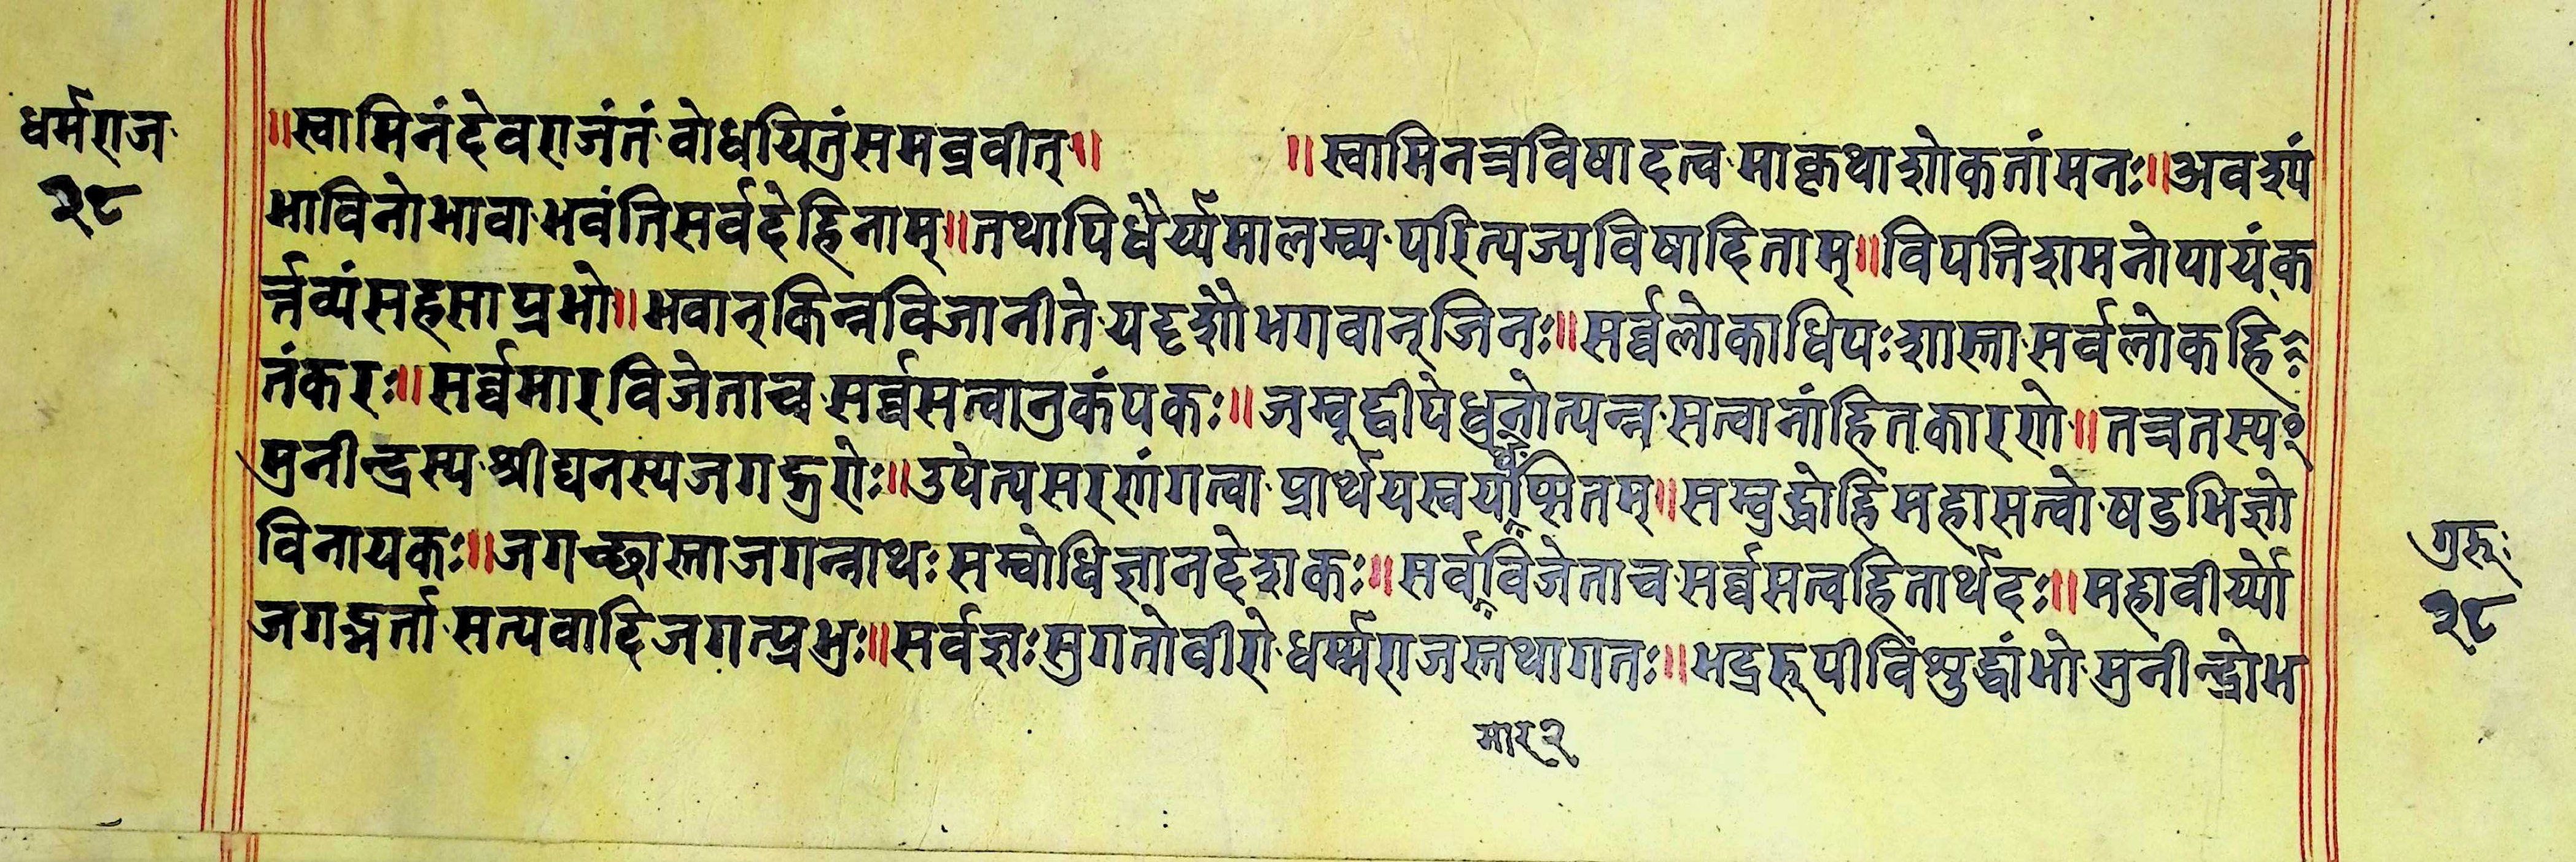 धर्मराज
२८
॥स्वामिनंदेवराजंतं वोधयितुंसमब्रवीत्॥ ॥स्वामिनत्रविषादत्व माकृथाशोकतांमनः॥अवश्यं
भाविनोभावा भवंतिसर्वदेहिनाम्॥तथापिधैर्य्यमालम्ब्य परित्यज्यविषादिताम्॥विपत्तिशमनोपायंक
र्त्तव्यंसहसाप्रभो॥भवान्किन्नविजानीते यदृशौभगवान्जिनः॥सर्व्वलोकाधिपःशास्ता सर्वलोकहि
तंकरः॥सर्व्वमारविजेताच सर्व्वसत्वानुकंपकः॥जम्बूद्वीपेधुनोत्पन्न सत्वानांहितकारणे॥तत्रतस्य
मुनीन्द्रस्य श्रीघनस्यजगद्गुरोः॥उपेत्यसरणंगत्वा प्रार्थयस्वयथेप्सितम्॥सम्बुद्धोहिमहासत्वो षडभिज्ञो
विनायकः॥जगच्छास्ताजगन्नाथः सम्वोधिज्ञानदेशकः॥सर्वविजेताच सर्व्वसत्वहितार्थदः॥महावीर्य्यो
जगद्भर्ता सत्यवादिजगत्प्रभुः॥सर्वज्ञः सुगतोवीरो धर्म्मराजस्तथागतः॥भद्ररूपीविशुद्धांभो मुनीन्द्रोभ
मार २
गुरूः
२८